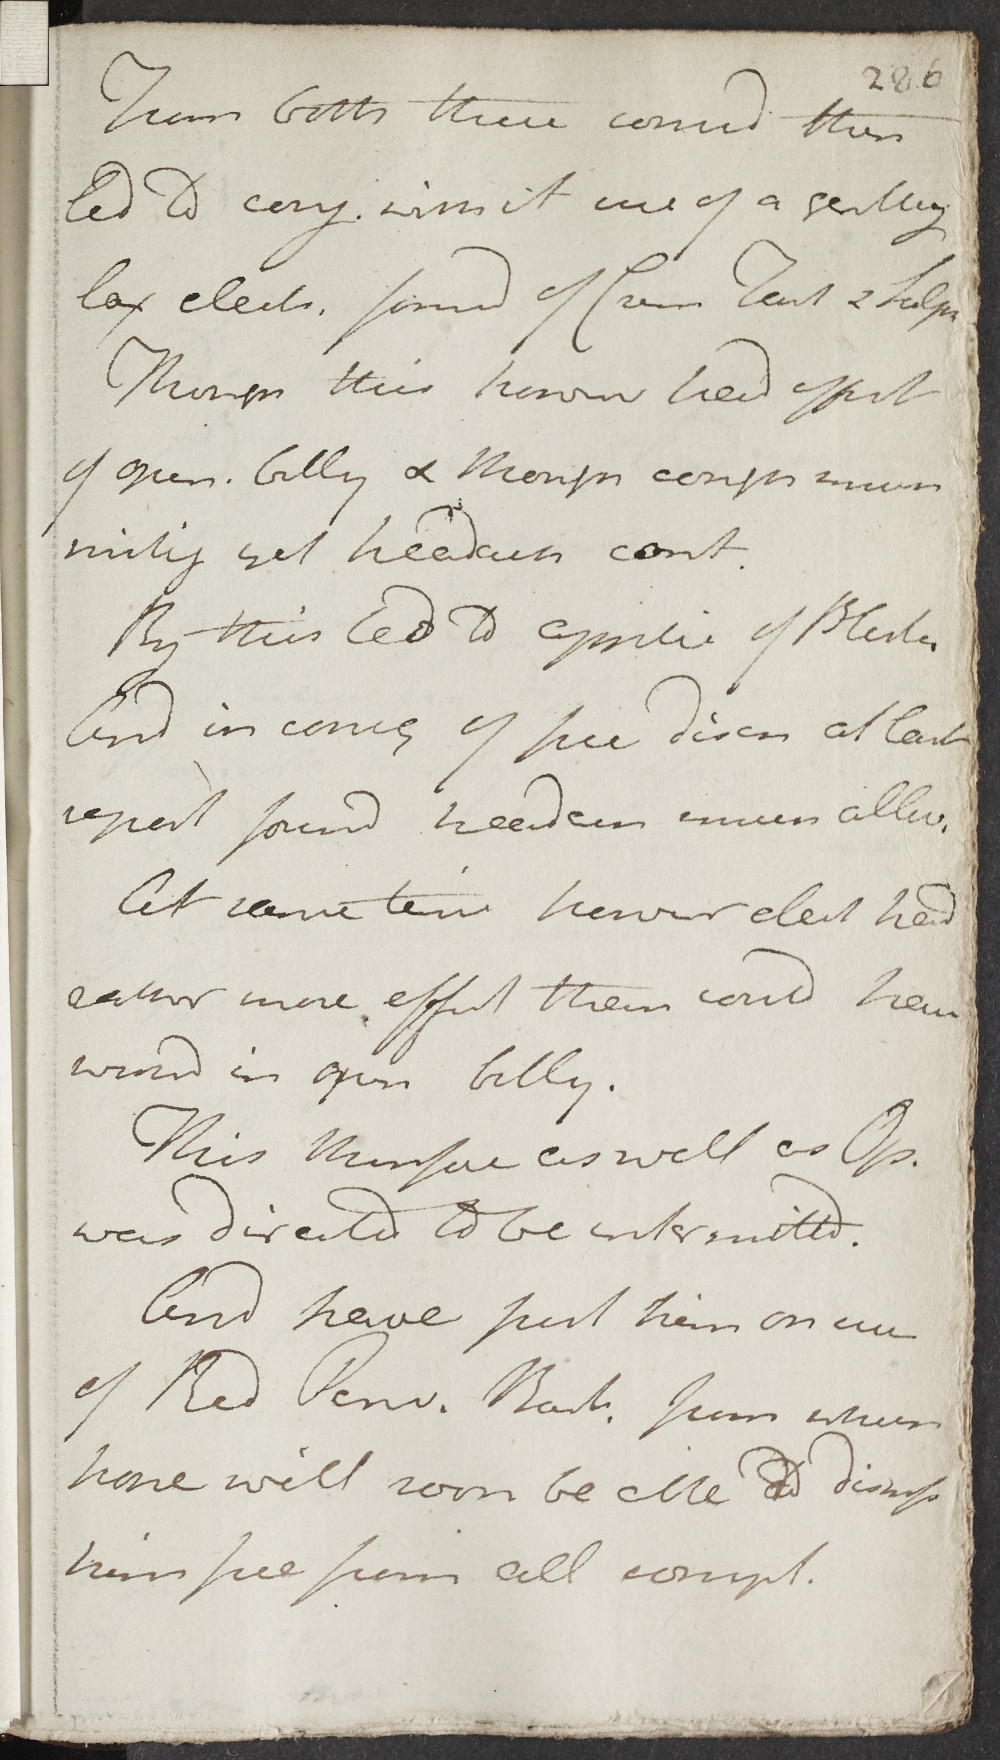 286
From both these consid then
led to conj. with it use of a gentley
lax elect. formd of Crem Tart & Sulph
Though this howevr had effect
of open. belly & though cough much
mitig yet headach cont.
By this led to applic of Blister
And in conseq of free disch at last
report found headach much allev.
At same time howevr elect had
rather more effect than could have
wishd in open belly.
This therefore as well as Op.
was directed to be intermittd.
And have put him on use
of Red Peruv. Bark. from whence
hope will soon be able to dismiss
him free from all compl.